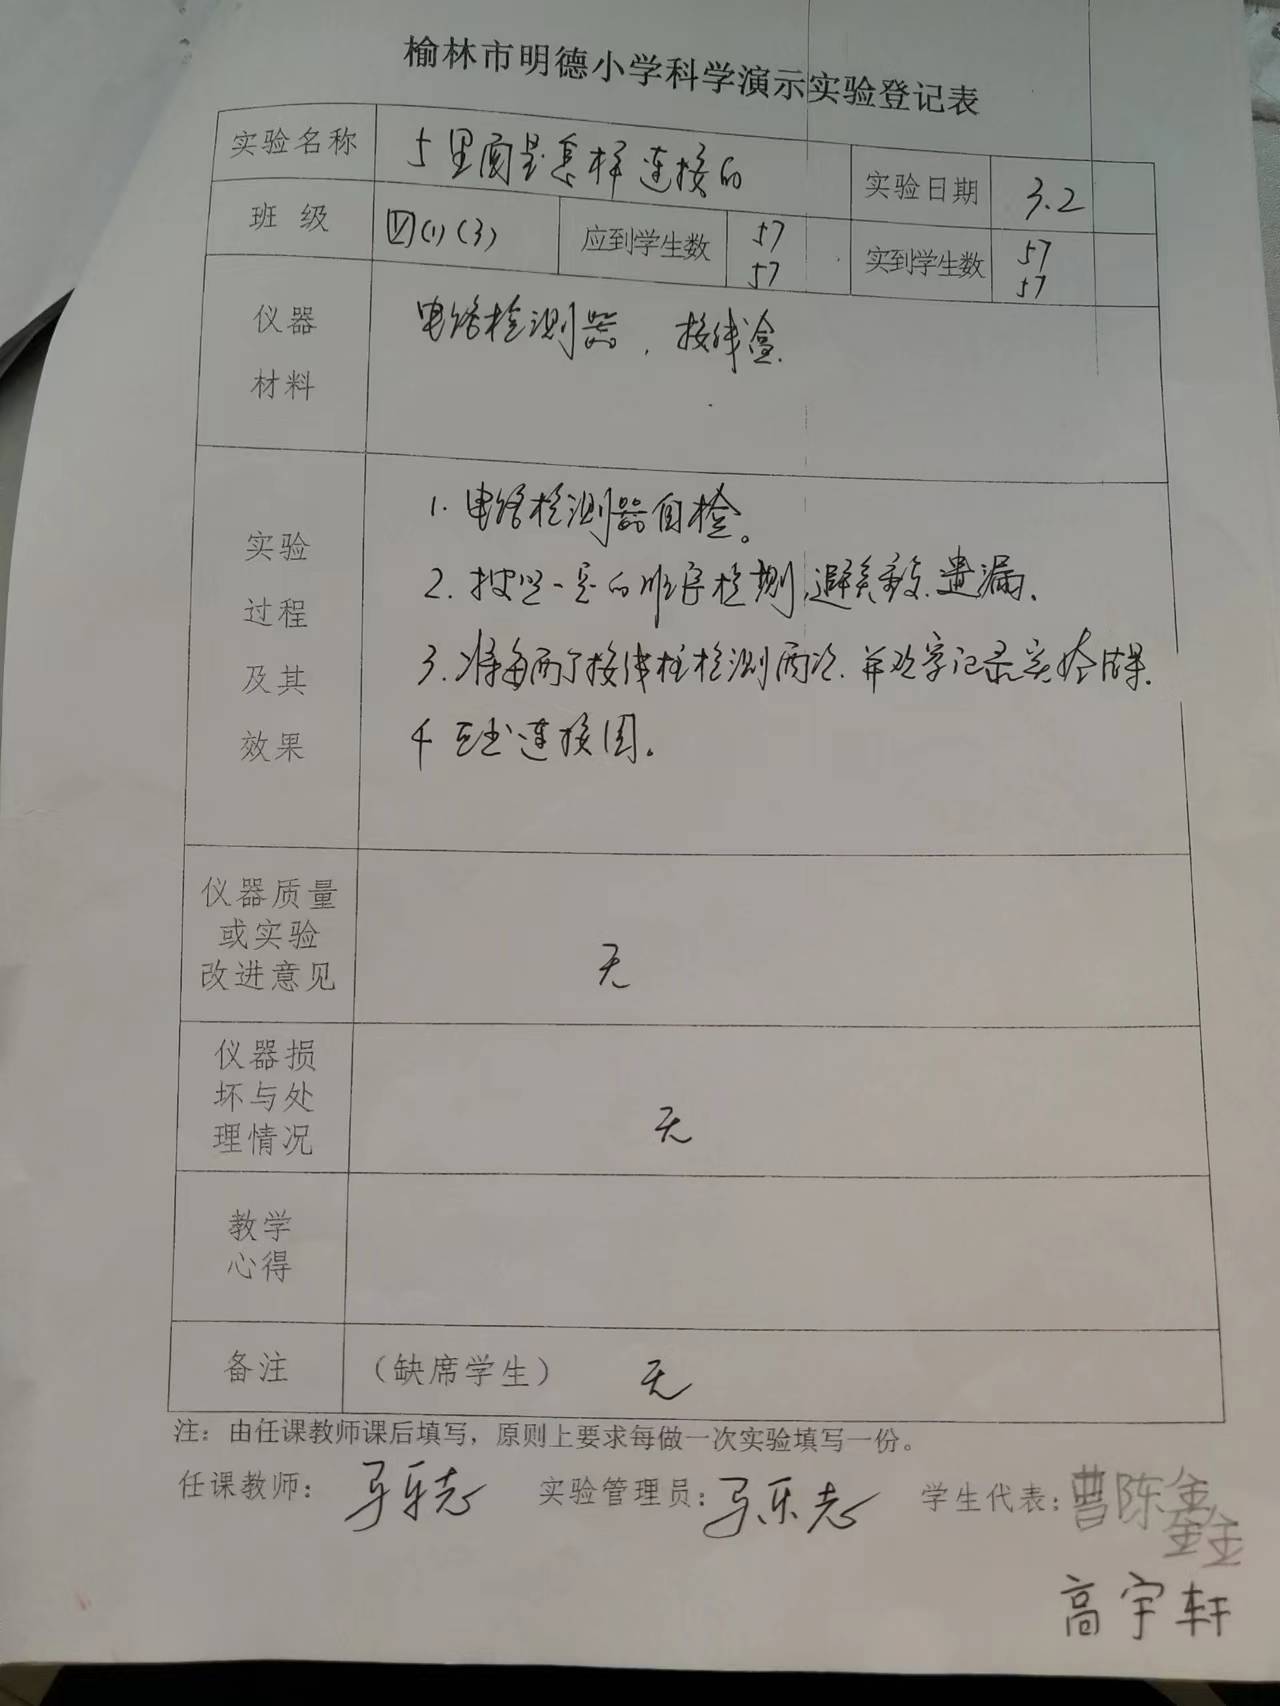 榆林市明德小学科学演示实验登记表
实验名称 5里面是怎样连接的 实验日期 3.2
班 级 四(1)(3) 应到学生数 57 57 实到学生数 57 57
仪器 材料 电路检测器，接线盒.
实验 过程 及其 效果
1.电路检测器自检。
2.按照一定的顺序检测,避免重复.遗漏.
3.将每两个接线柱检测两次.并如实记录实验结果.
4 画出连接图。
仪器质量 或实验 改进意见 无
仪器损 坏与处 理情况 无
教学 心得
备注 （缺席学生） 无
注：由任课教师课后填写，原则上要求每做一次实验填写一份。
任课教师： 马乐志 实验管理员：马乐志 学生代表：曹陈鑫
高宇轩